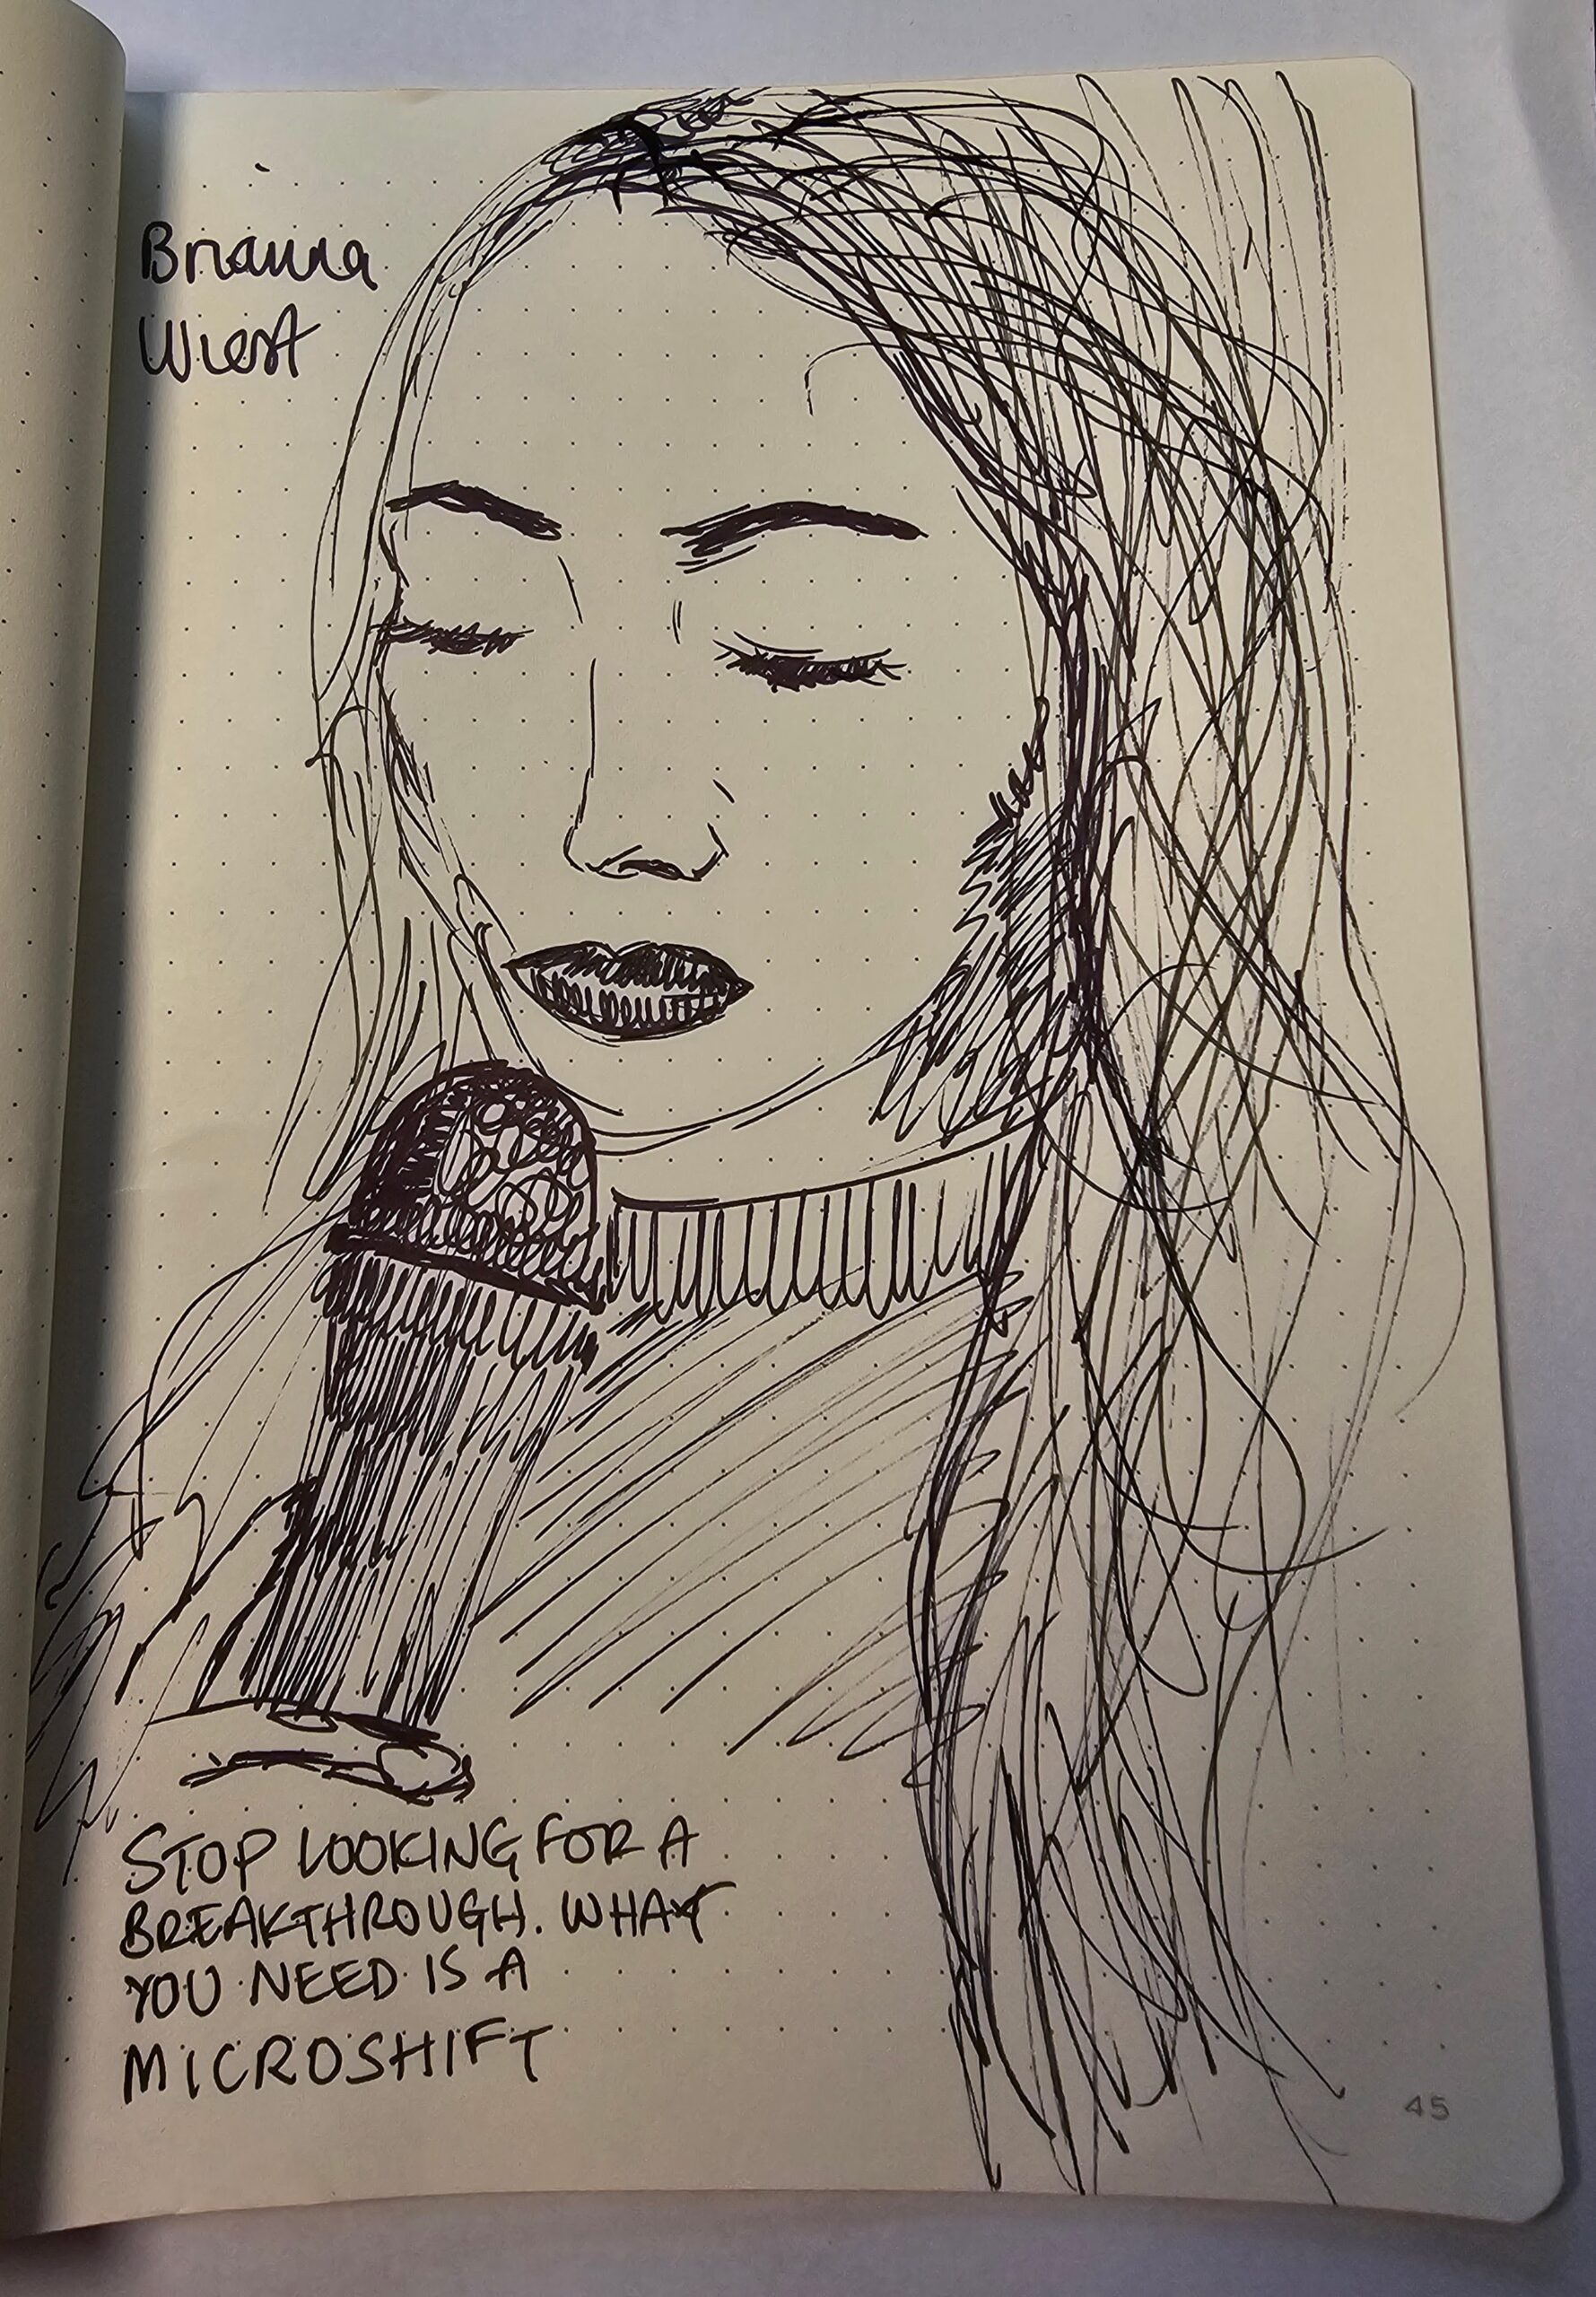 Brianna
Wiest
STOP LOOKING FOR A
BREAKTHROUGH. WHAT
YOU NEED IS A
MICROSHIFT
45